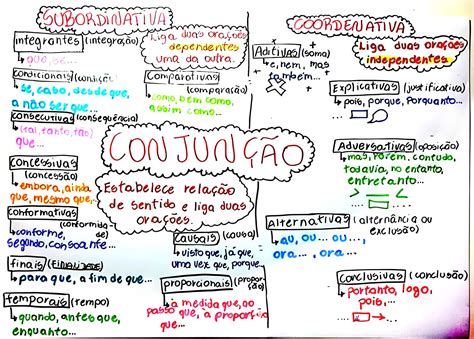 SUBORDINATIVA
Liga duas orações
dependentes
uma da outra.
integrantes (integração)
que, se...
condicionais (condição)
se, caso, desde que,
a não ser que...
consecutivas (consequência)
(tal, tanto, tão)
que...
concessivas
(concessão)
embora, ainda
que, mesmo que,
conformativas
(conformidade)
conforme,
segundo, consoante...
finais (FINALIDADE)
para que, a fim de que...
temporais (tempo)
quando, antes que,
enquanto...
Comparativas
(comparação)
como, bem como,
assim como...
CONJUNÇÃO
Estabelece relação
de sentido e liga duas
orações.
causais (causa)
visto que, já que,
uma vez que, porque...
proporcionais (proporção)
à medida que, ao
passo que, à proporção
que...
COORDENATIVA
Liga duas orações
independentes
Aditivas (soma)
e, nem, mas
também...
Explicativas (justificativa)
pois, porque, porquanto...
Adversativas (oposição)
mas, porém, contudo,
todavia, no entanto,
entretanto...
Alternativas (alternância ou
exclusão)
ou, ou... ou...,
ora... ora...
conclusivas (conclusão)
portanto, logo,
pois,...